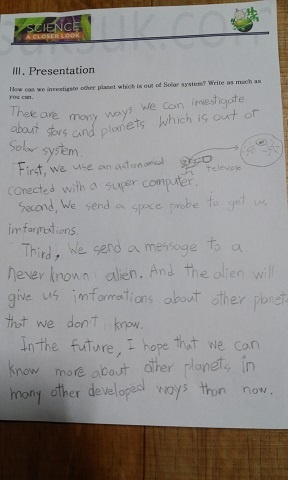 SCIENCE
A CLOSER LOOK
III. Presentation
How can we investigate other planet which is out of Solar system? Write as much as
you can.
There are many ways we can investigate
about stars and planets which is out of
Solar system.
First, we use an
conected with a super computer.
Second, We send a space probe to get us
imformations.
Third, We send a message to a
never known alien. And the alien will
give us imformations about other planets
that we don't know.
In the future, I hope that we can
know more about other planets in
many other developed ways than now.